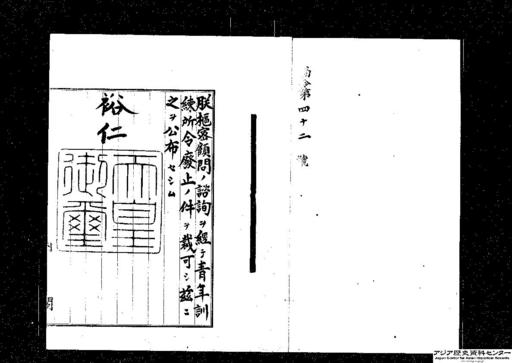 勅令第四十二號
朕樞密顧問ノ諮詢ヲ經テ青年訓
練所令廢止ノ件ヲ裁可シ茲ニ
之ヲ公布セシム
裕仁
天皇
御璽
内閣
アジア歴史資料センター
Japan Center for Asian Historical Records